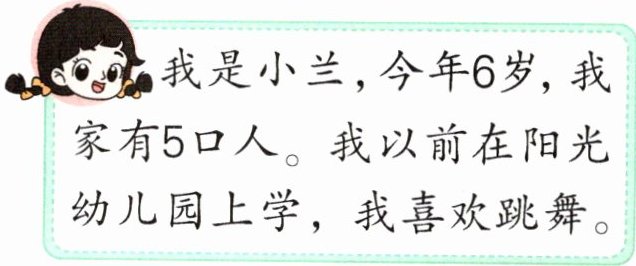 我是小兰，今年6岁，我
家有5口人。我以前在阳光
幼儿园上学，我喜欢跳舞。